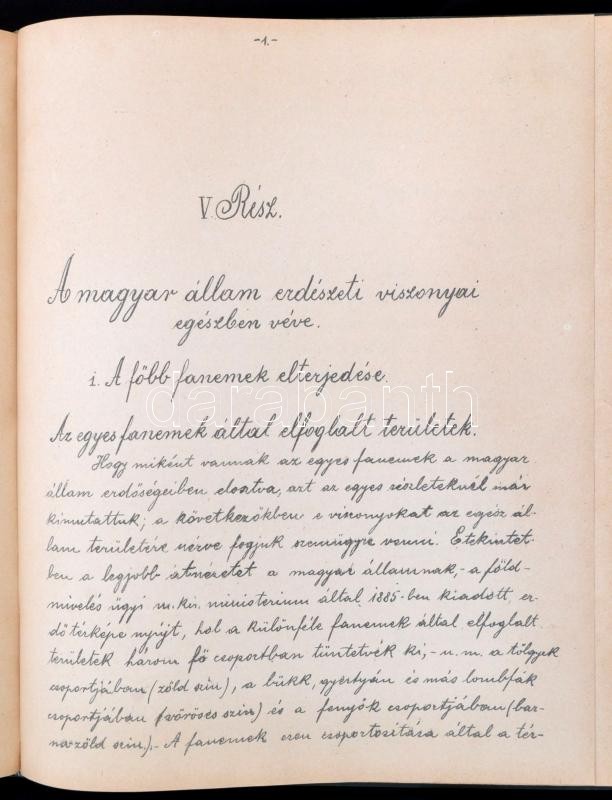 -1.-
V. Rész.
A magyar állam erdészeti viszonyai
egészben véve.
1. A főbb fanemek elterjedése.
Az egyes fanemek által elfoglalt területek.
Hogy miként vannak az egyes fanemek a magyar
állam erdőségeiben elosztva, azt az egyes részleteknél már
kimutattuk; a következőkben e viszonyokat az egész ál-
lam területére nézve fogjuk szemügyre venni. E tekintet-
ben a legjobb átnézetet a magyar államnak,- a föld-
mivelés ügyi m. kir. ministerium által 1885-ben kiadott er-
dőtérképe nyújt, hol a különféle fanemek által elfoglalt
területek három fő csoportban tüntetvék ki,- u. m. a tölgyek
csoportjában (zöld szin), a bükk, gyertyán és más lombfák
csoportjában (vöröses szin) és a fenyők csoportjában (bar-
nazöld szin).- A fanemek ezen csoportositása által a tér-
darabanth